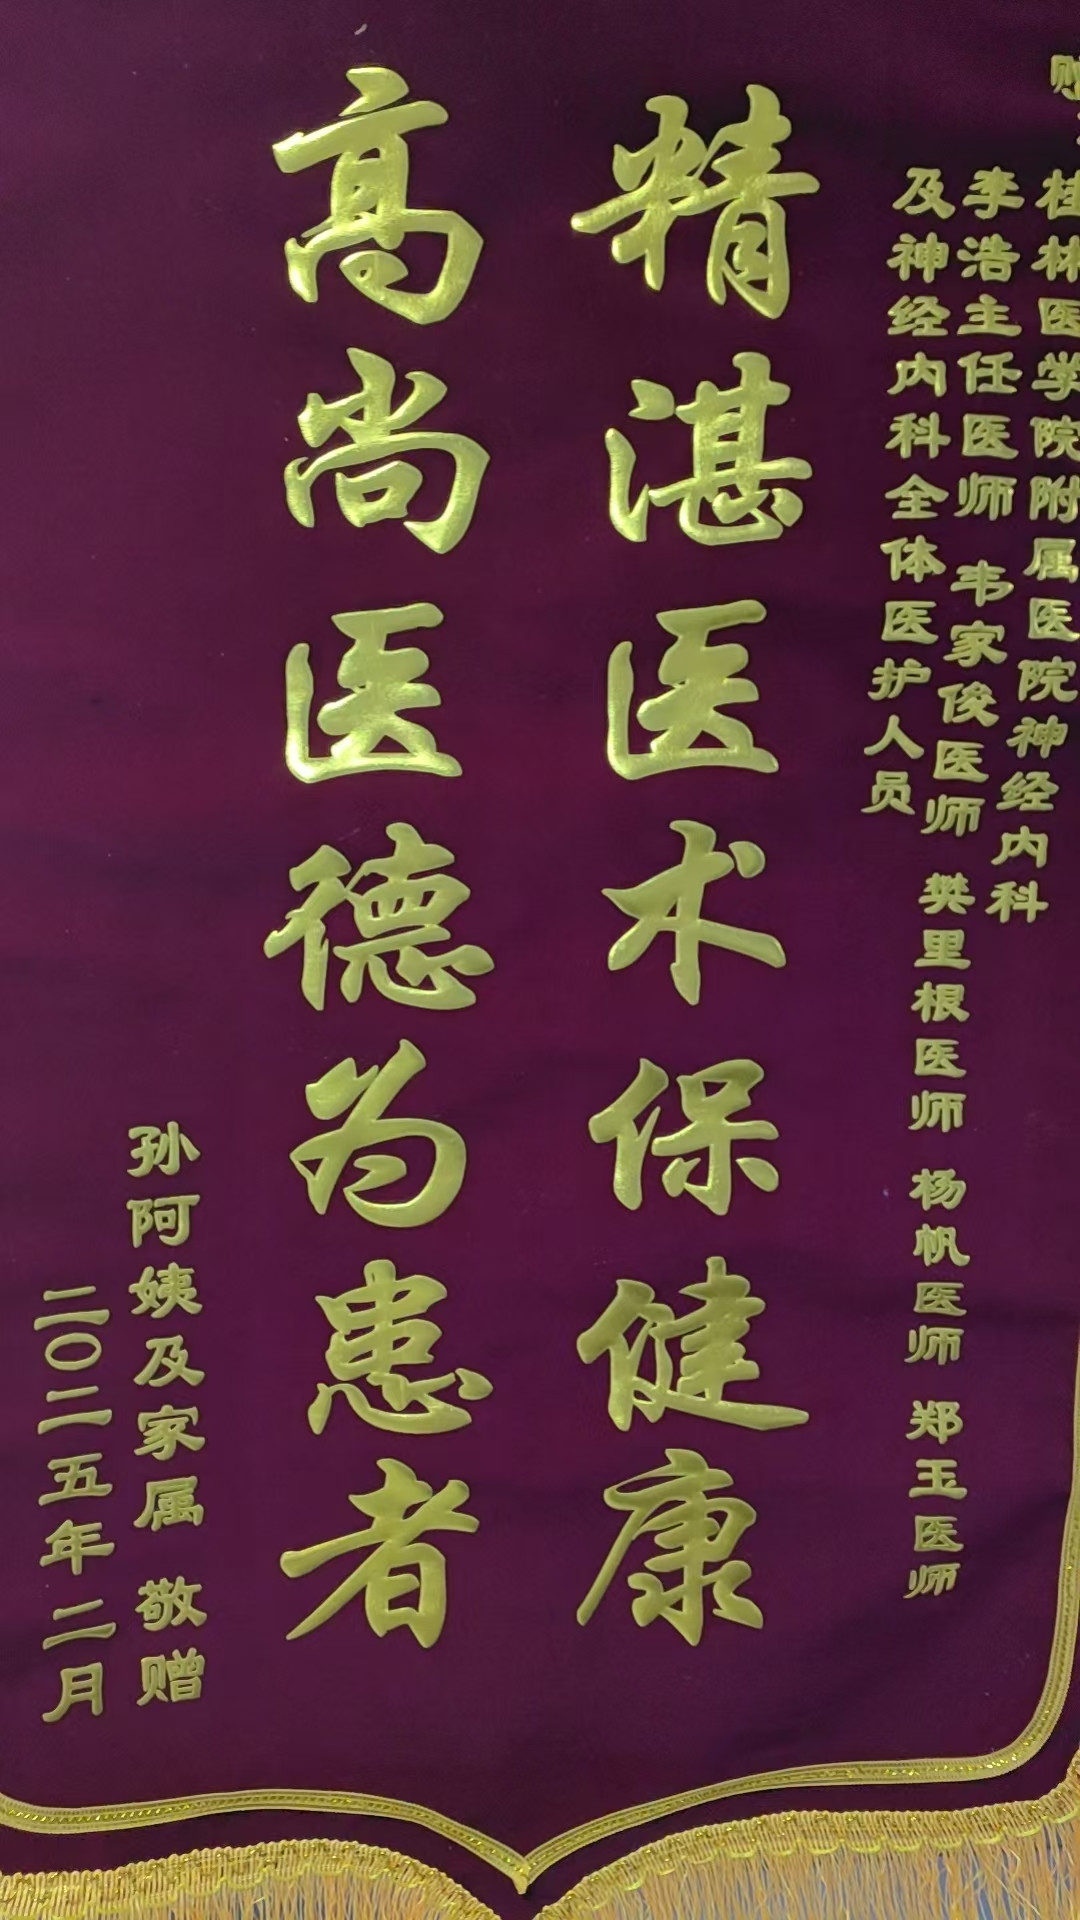 桂林医学院附属医院神经内科
李浩主任医师 韦家俊医师 樊里根医师 杨帆医师 郑玉医师
及神经内科全体医护人员
精湛医术保健康
高尚医德为患者
孙阿姨及家属 敬赠
二〇二五年二月